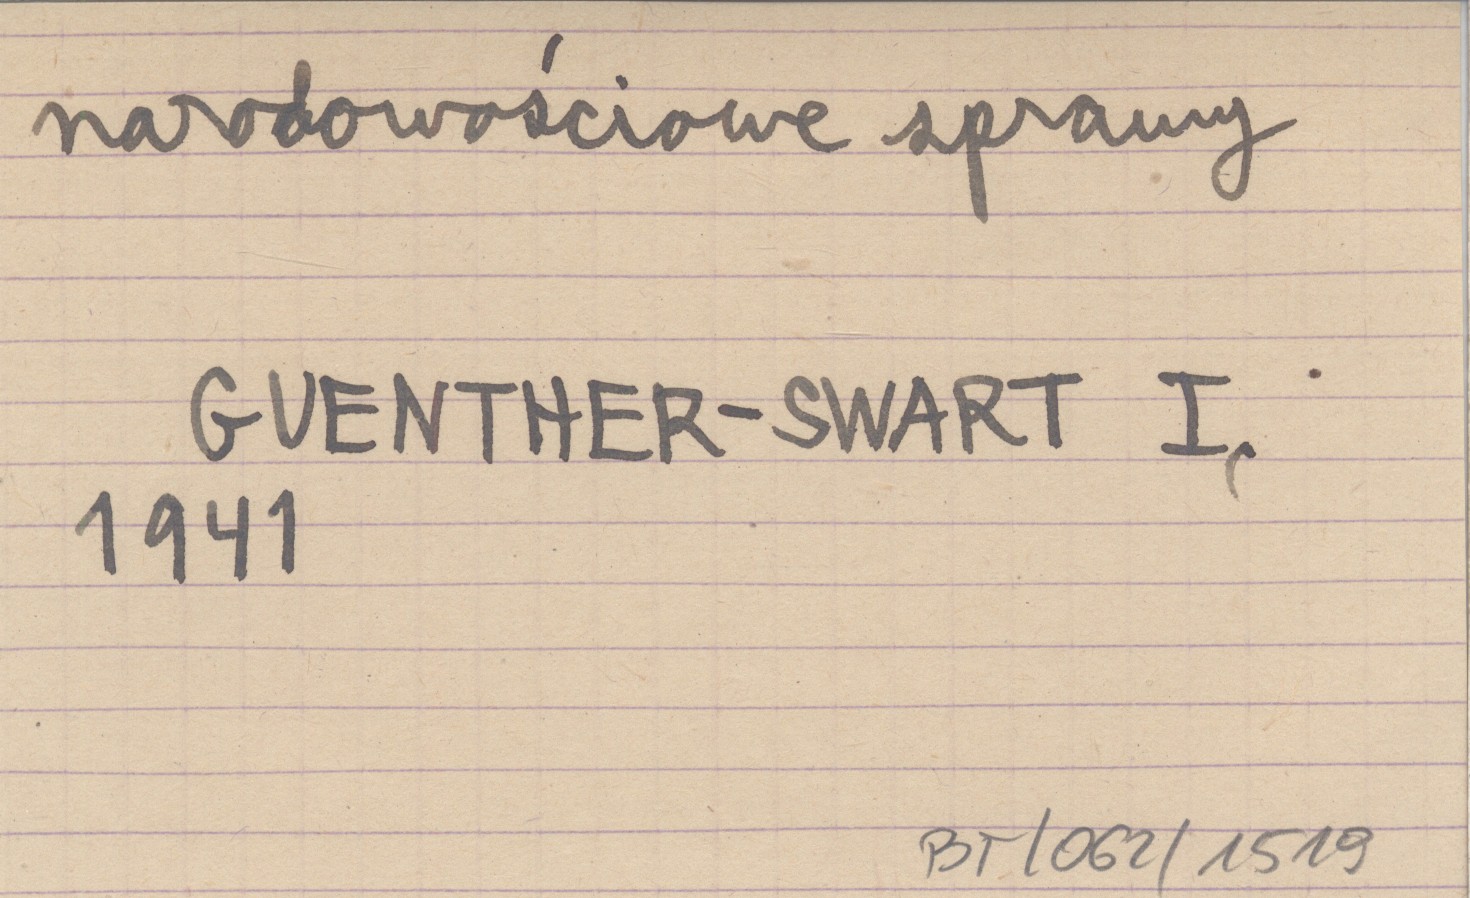 narodowościowe sprawy
GUENTHER-SWART I.,
1941
BT/062/1519